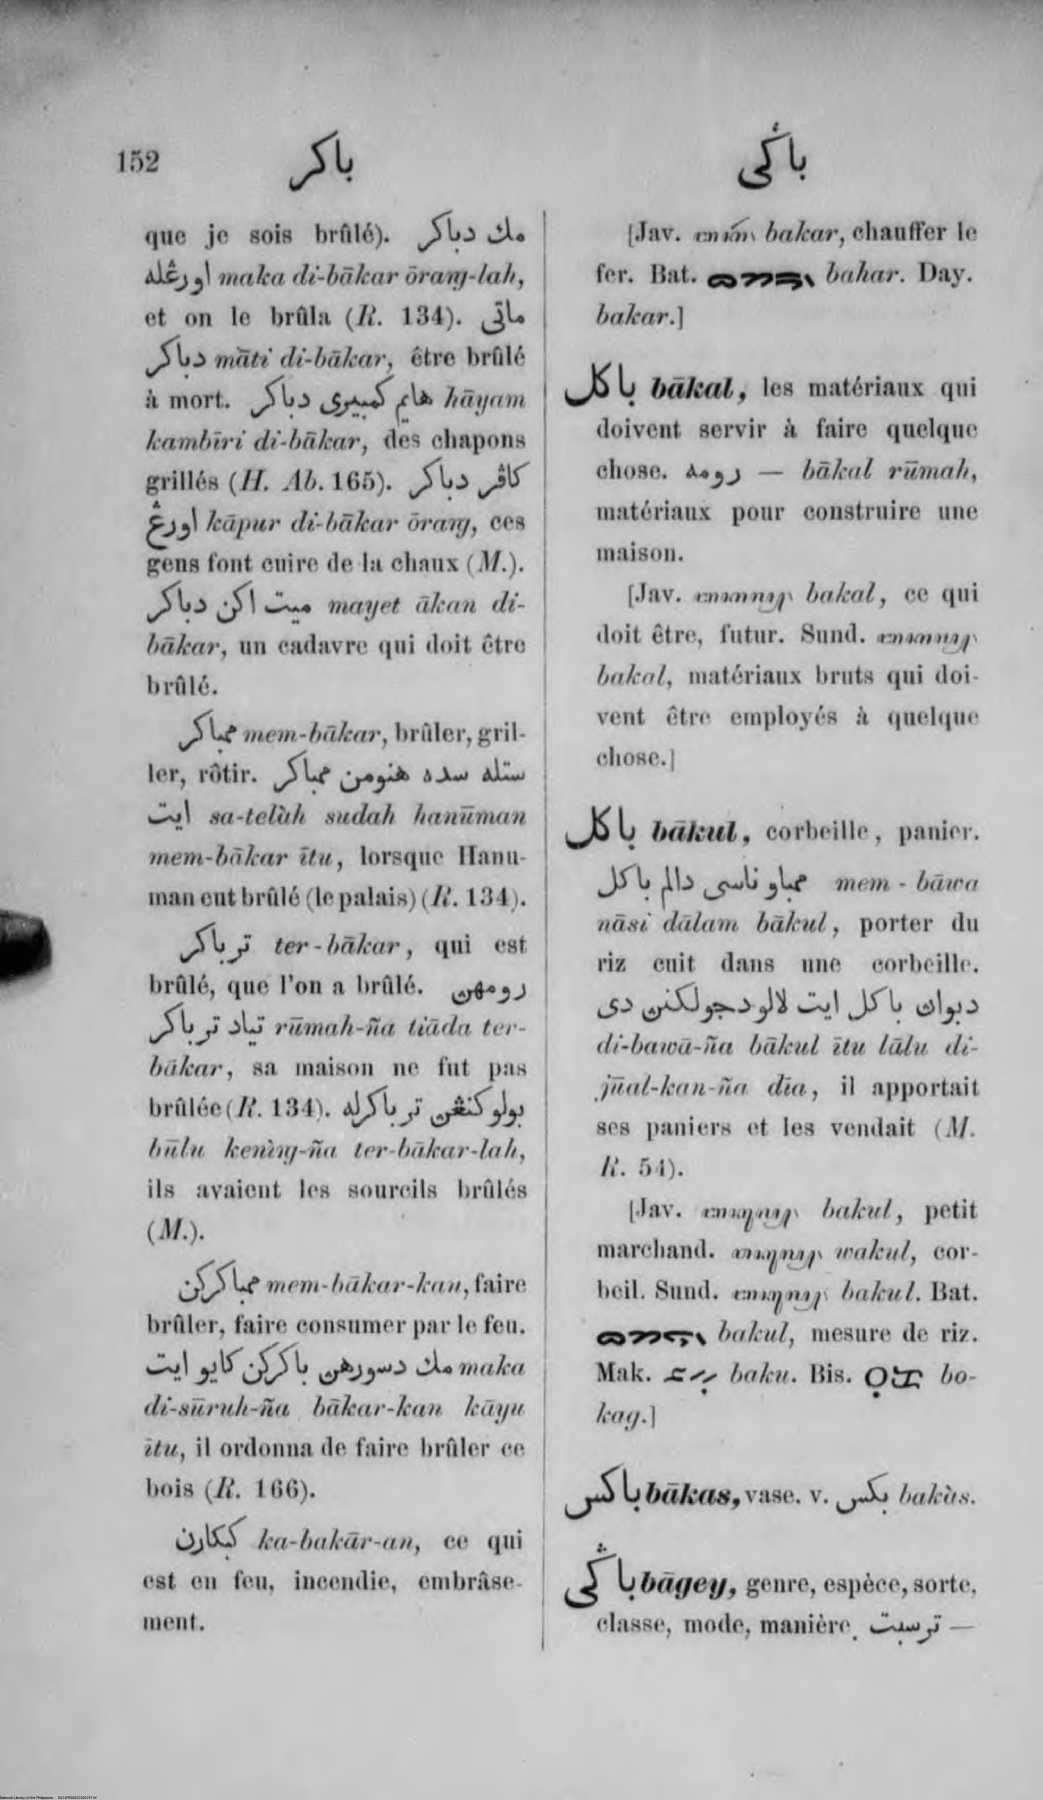 152 باكر باݢي
que je sois brûlé). مك دباكر
اورڠله maka di-bākar ōrang-lah,
et on le brûla (R. 134). ماتي
دباكر māti di-bākar, être brûlé
à mort. هايم كمبيري دباكر hāyam
kambīri di-bākar, des chapons
grillés (H. Ab. 165). كاڤر دباكر
اورڠ kāpur di-bākar ōrang, ces
gens font cuire de la chaux (M.).
ميت اكن دباكر mayet ākan di-
bākar, un cadavre qui doit être
brûlé.
ممباكر mem-bākar, brûler, gril-
ler, rôtir. ستله سده هنومن ممباكر
ايت sa-telàh sudah hanūman
mem-bākar ītu, lorsque Hanu-
man eut brûlé (le palais) (R. 134).
ترباكر ter-bākar, qui est
brûlé, que l'on a brûlé. رومهن
تياد ترباكر rūmah-ña tiāda ter-
bākar, sa maison ne fut pas
brûlée (R. 134). بولو كنڠن ترباكرله
būlu kenìng-ña ter-bākar-lah,
ils avaient les sourcils brûlés
(M.).
ممباكركن mem-bākar-kan, faire
brûler, faire consumer par le feu.
مك دسورهن باكركن كايو ايت maka
di-sūruh-ña bākar-kan kāyu
ītu, il ordonna de faire brûler ce
bois (R. 166).
كبكارن ka-bakār-an, ce qui
est en feu, incendie, embrâse-
ment.
[Jav. bakar, chauffer le
fer. Bat. bahar. Day.
bakar.]
باكل bākal, les matériaux qui
doivent servir à faire quelque
chose. رومه — bākal rūmah,
matériaux pour construire une
maison.
[Jav. bakal, ce qui
doit être, futur. Sund.
bakal, matériaux bruts qui doi-
vent être employés à quelque
chose.]
باكل bākul, corbeille, panier.
ممباو ناسي دالم باكل mem-bāwa
nāsi dālam bākul, porter du
riz cuit dans une corbeille.
ديوان باكل ايت لالو دجولكنن دي
di-bawā-ña bākul ītu lālu di-
jūal-kan-ña dīa, il apportait
ses paniers et les vendait (M.
R. 54).
[Jav. bakul, petit
marchand. wakul, cor-
beil. Sund. bakul. Bat.
bakul, mesure de riz.
Mak. baku. Bis. bo-
kag.]
باكس bākas, vase. v. بكس bakàs.
باݢي bāgey, genre, espèce, sorte,
classe, mode, manière. ترسبت —